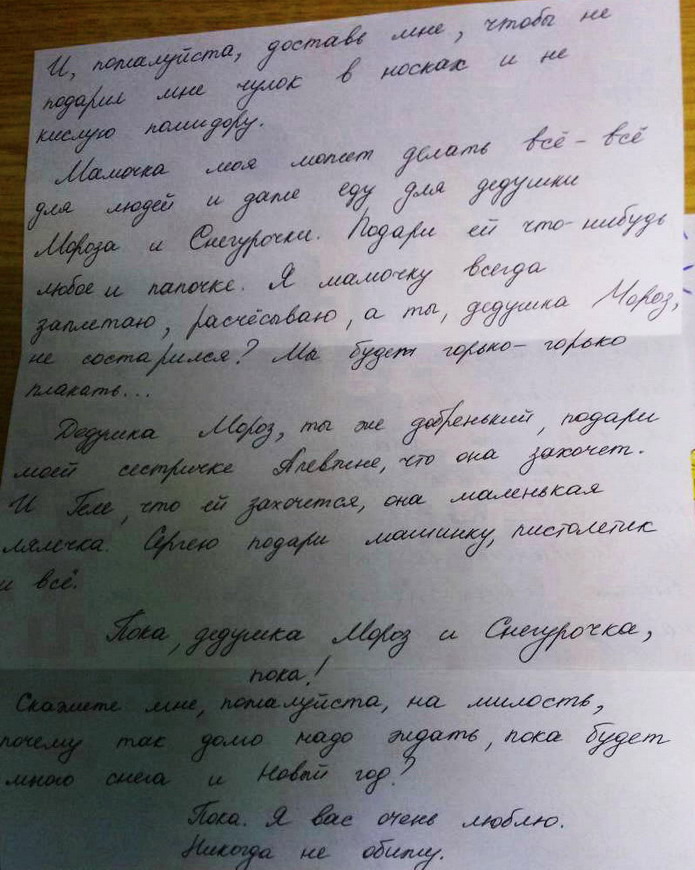 И, пожалуйста, доставь мне, чтобы не
подарил мне чулок в носках и не
кислую помидору.
Мамочка моя может делать всё-всё
для людей и даже еду для дедушки
Мороза и Снегурочки. Подари ей что-нибудь
любое и папочке. Я мамочку всегда
заплетаю, расчёсываю, а ты, дедушка Мороз,
не состарился? Мы будет горько-горько
плакать...
Дедушка Мороз, ты же добренький, подари
моей сестричке Алевтине, что она захочет.
И Геле, что ей захочется, она маленькая
лялечка. Сергею подари машинку, пистолетик
и всё.
Пока, дедушка Мороз и Снегурочка,
пока!
Скажите мне, пожалуйста, на милость,
почему так долго надо ждать, пока будет
много снега и Новый год?
Пока. Я вас очень люблю.
Никогда не обижу.